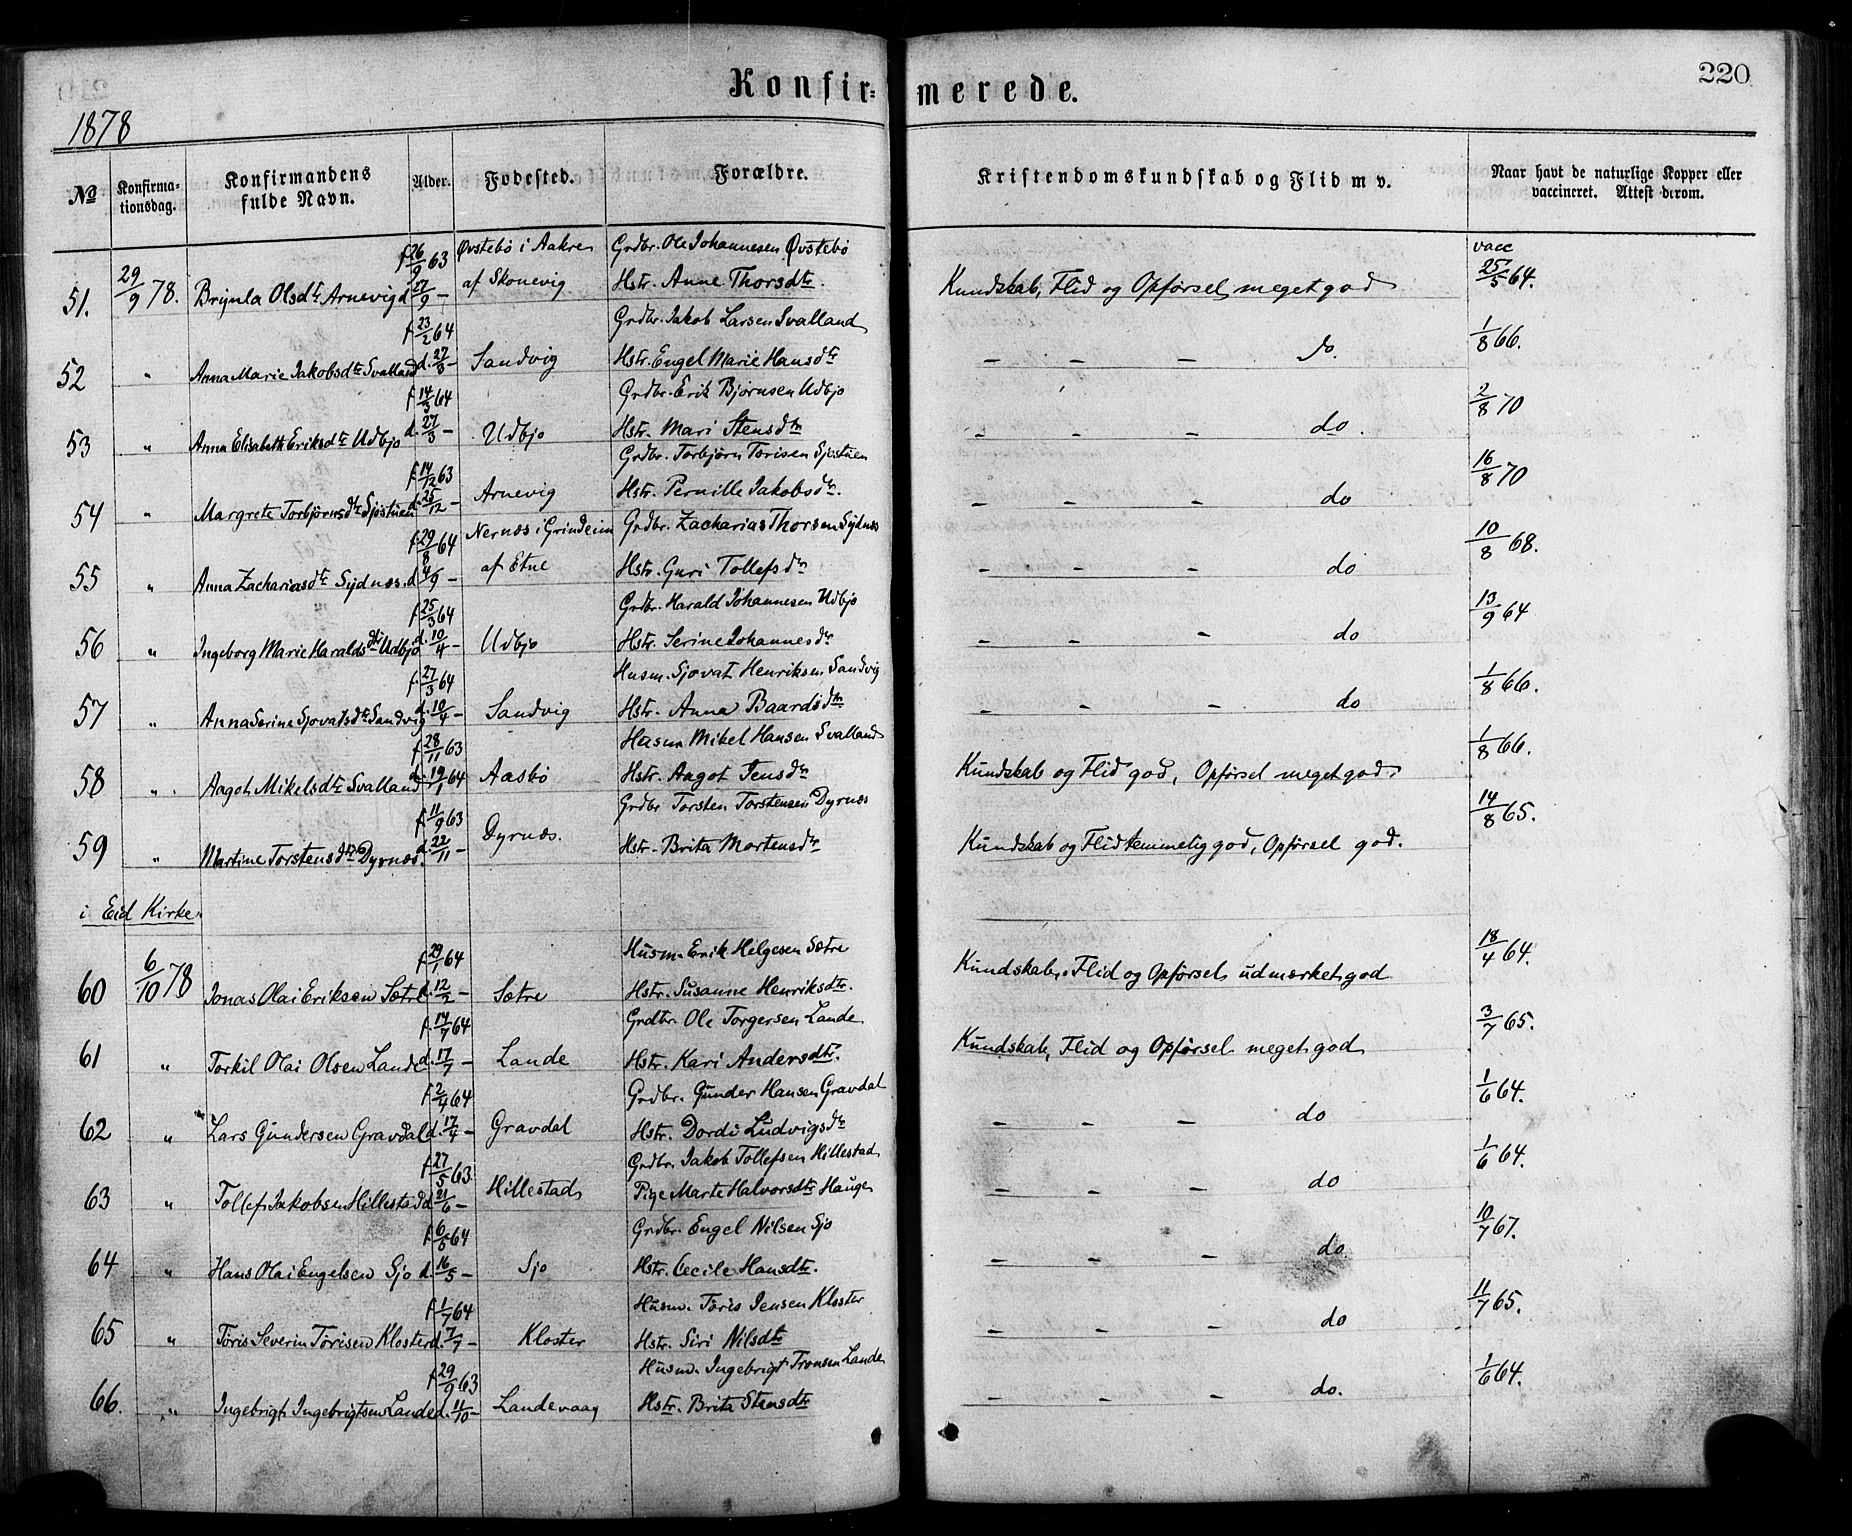 Konfirmerede.
220
1878
No
Konfirmationsdag.
Konfirmandens fulde Navn.
Alder.
Fødested.
Forældre.
Kristendomskundskab og Flid m v.
Naar havt de naturlige Kopper eller vaccineret. Attest derom.
f 26/9 63 Øvstebø i Aakre Grdbr. Ole Johannesen Øvstebø vacc
51. 29/9 78. Brynla Olsdtr Arnevig d 27/9 – af Skonevig Hstr. Anne Thorsdtr. Kundskab, Flid og Opførsel meget god 25/5 64.
f 23/2 64 Grdbr. Jakob Larsen Svalland
52 " Anna Marie Jakobsdtr Svalland d. 27/3 – Sandvig Hstr. Engel Marie Hansdtr – – – do. 1/8 66.
f 14/3 64 Grdbr. Erik Bjørnsen Udbjo
53 " Anna Elisabeth Eriksdtr Udbjo d. 27/3 – Udbjo Hstr. Mari Stensdtr – – – do. 2/8 70
f 14/12 63 Grdbr. Torbjørn Torisen Sjostuen
54 " Margrete Torbjørnsdtr Sjostuen d. 25/12 – Arnevig Hstr. Pernille Jakobsdtr. – – – do 16/8 70
f 29/8 64 Nernæs i Grindeim Grdbr. Zacharias Thorsen Sydnæs
55 " Anna Zachariasdtr Sydnæs. d 4/9 – af Etne Hstr. Guri Tollefsdtr – – – do 10/8 68.
f 25/3 64 Grdbr. Harald Johannesen Udbjo
56 " Ingeborg Marie Haraldsdtr Udbjo d. 10/4 – Udbjo Hstr. Serine Johannesdtr – – – do 13/9 64
f. 27/3 64 Husm. Sjovat Henriksen Sandvig
57 " Anna Serine Sjovatsdtr Sandvig d. 10/4 – Sandvig Hstr. Anna Baardsdtr – – – do 1/8 66.
f 28/11 63 Husm Mikel Hansen Svalland
58 " Aagot Mikelsdtr Svalland d. 19/1 64 Aasbø Hstr. Aagot Jensdtr Kundskab og Flid god, Opførsel meget god. 1/8 66.
f 11/9 63 Grdbr Torsten Torstensen Dyrnæs
59 " Martine Torstensdtr Dyrnæs. d. 22/11 – Dyrnæs. Hstr. Brita Mortensdtr Kundskab og Flid temmelig god, Opførsel god. 14/8 65.
i Eid Kirke.
f 29/1 64 Husm. Erik Helgesen Sætre
60 6/10 78 Jonas Olai Eriksen Sætre d. 12/2 – Sætre Hstr. Susanne Henriksdtr. Kundskab, Flid og Opførsel udmærket god 18/4 64.
f. 14/7 64 Grdbr. Ole Torgersen Lande
61 " Torkil Olai Olsen Lande d. 17/7 – Lande Hstr. Kari Andersdtr. Kundskab, Flid og Opførsel meget god 3/7 65.
f 2/4 64 Grdbr. Gunder Hansen Gravdal
62 " Lars Gundersen Gravdal d. 17/4 – Gravdal Hstr. Dordi Ludvigsdtr – – – do 1/6 64.
f 27/5 63 Grdbr. Jakob Tollefsen Hillestad
63 " Tollef Jakobsen Hillestad d 21/6 – Hillestad Pige Marte Halvorsdtr Hauge – – – do 1/6 64.
f. 6/5 64 Grdbr. Engel Nilsen Sjo
64 " Hans Olai Engelsen Sjo d. 16/5 – Sjo Hstr. Cecile Hansdtr. – – – do 10/7 67.
f 1/7 64 Husm. Toris Jensen Kloster
65 " Toris Severin Torisen Kloster d. 7/7 – Kloster Hstr. Siri Nilsdtr – – – do 11/7 65.
f 29/9 63 Husm. Ingebrigt Tronsen Lande
66. " Ingebrigt Ingebrigtsen Lande d. 11/10 – Landevaag Hstr. Brita Stensdtr – – – do. 1/6 64.